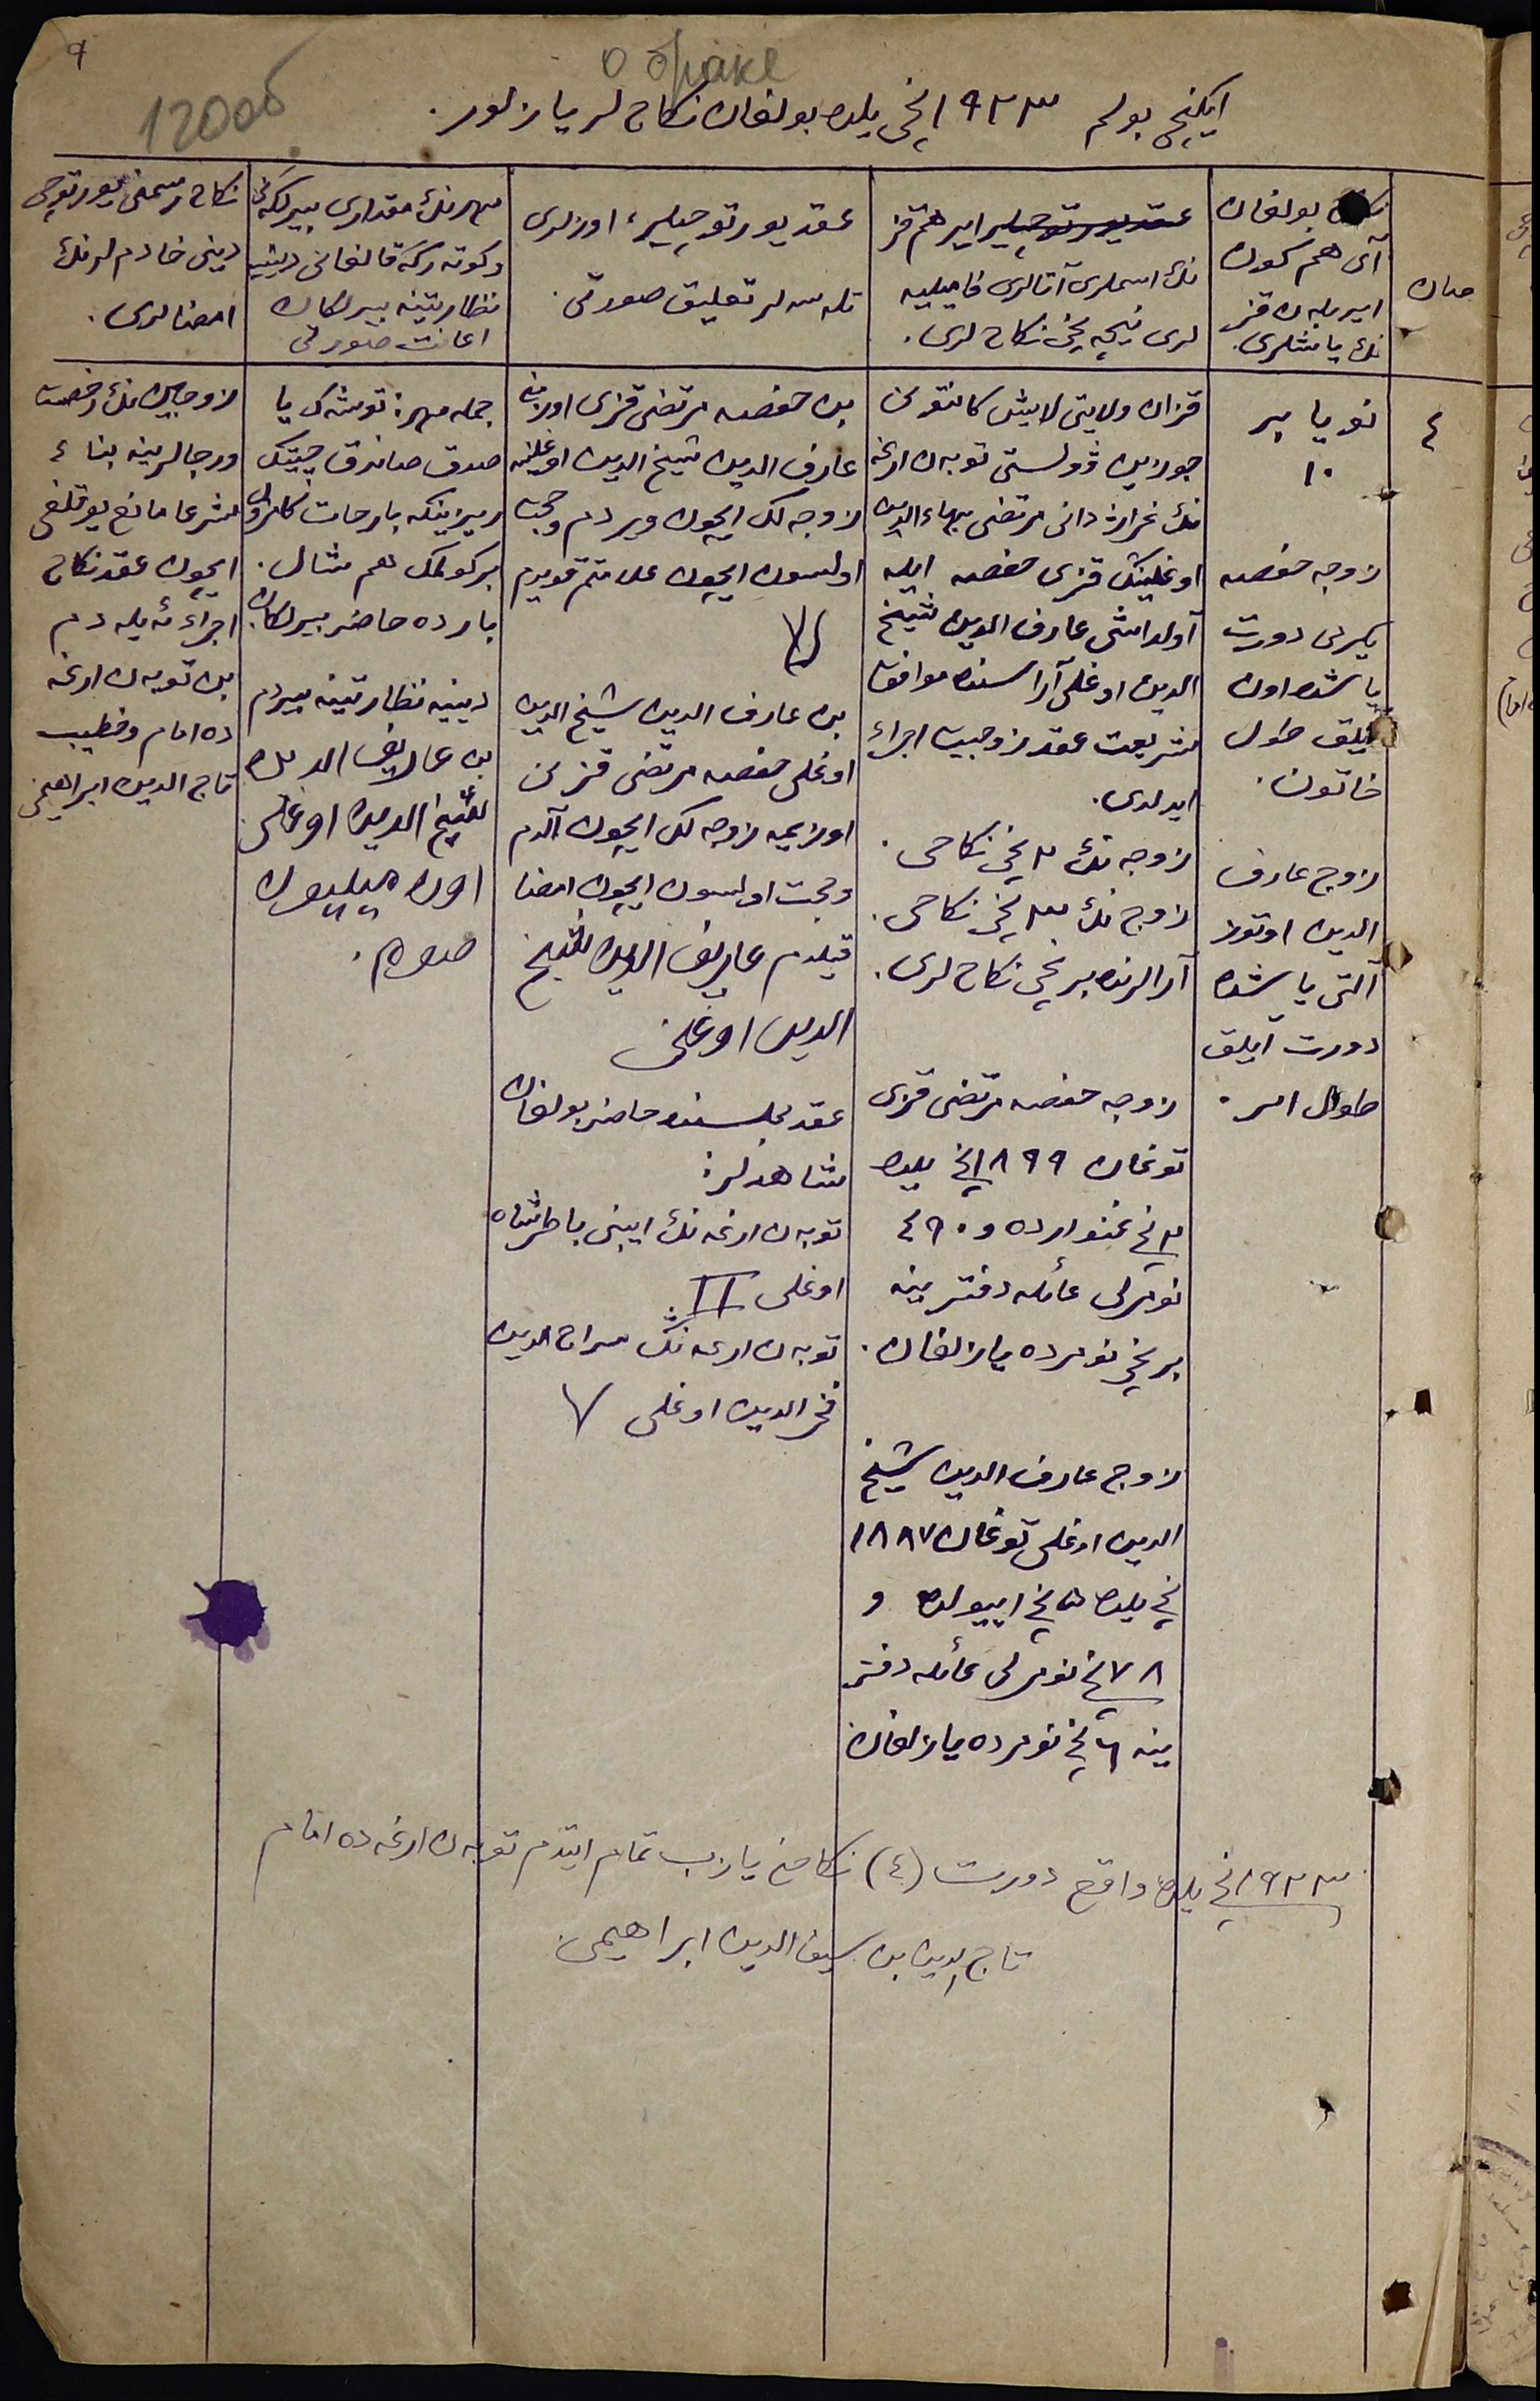 о браке
12006
ایکنچی بولم ۱۹۲۳نچی یلده بولغان نکاح لر یازلور.
صان
نکاح بولغان
آی هم کون
ایر بلەن قز
نڭ یاشلری.
عقد یورتوچیلر ایر هم قز
نڭ اسملری آتالری فامیلیه
لری نیچه نچی نکاح لری.
عقد یورتوچیلر، اوزلری
تله‌سه‌لر تعلیق صورتی.
مهرنڭ مقداری بیرلگه‌نی
وکوته‌رگه قالغانی دینیه
نظارتینه بیرلگان
اعانت صورتی
نکاح رسمنی یورتوچی
دینی خادم لرنڭ
امضالری.
٤
نویابر
۱۰
زوجه حفصه
یگرمی دورت
یاشده اون
آیلق طول
خاتون.
زوج عارف
الدین اوتوز
آلتی یاشده
دورت آیلق
طول ایر.
قزان ولایتی لایش کانتونی
چورلین ۋولستی توبەن ارغه
نڭ غراژدانی مرتضی بهاءالدین
اوغلینڭ قزی حفصه ایله
آولداشی عارف الدین شیخ
الدین اوغلی آراسنده موافق
شریعت عقد زوجیت اجراء
ایدلدی.
زوجه نڭ ۲نچی نکاحی.
زوج نڭ ۲نچی نکاحی.
آرالرنده برنچی نکاح لری.
زوجه حفصه مرتضی قزی
توغان ۱۸۹۹نچی یلده
۲نچی غنوارده و ۹۰٤
نومرلی عائله دفترینه
برنچی نومرده یازلغان.
زوج عارف الدین شیخ
الدین اوغلی توغان ۱۸۸۷
نچی یلده ۵نچی اییولده و
۷۸نچی نومرلی عائله دفتر
ینه ٦نچی نومرده یازلغان
بن حفصه مرتضی قزی اوزمنی
عارف الدین شیخ الدین اوغلینه
زوجه لک ایچون ویردم وحجت
اولسون ایچون علامتم قویدم
بن عارف الدین شیخ الدین
اوغلی حفصه مرتضی قزینی
اوزیمه زوجه لک ایچون آلدم
وحجت اولسون ایچون امضا
قیلدم عاریف الدین شیخ
الدین اوغلی
عقد مجلسنده حاضر بولغان
شاهدلر:
توبەن ارغه نڭ ایبنی باطرشاه
اوغلی II
توبەن ارغه نڭ سراج الدین
فخرالدین اوغلی V
جمله مهر: توشەک یا
صدق صاندق چیتک
ریزینکه بارحات کامزول
بر کولمک هم شال.
بارده حاضر بیرلگان
دینیه نظارتینه بیردم
بن عاریف الدین
شیخ الدین اوغلی
اون میلیون
صوم.
زوجین نڭ رخصت
ورجالرینه بناءً
شرعا مانع یوقلغی
ایچون عقد نکاح
اجراء ئه‌یله‌دم
بن توبەن ارغه
ده امام وخطیب
تاج الدین ابراهیمی
۱۹۲۳نچی یلده واقع دورت (٤) نکاحنی یازب تمام ایتدم توبەن ارغه‌ده امام
تاج الدین بن سیف الدین ابراهیمی